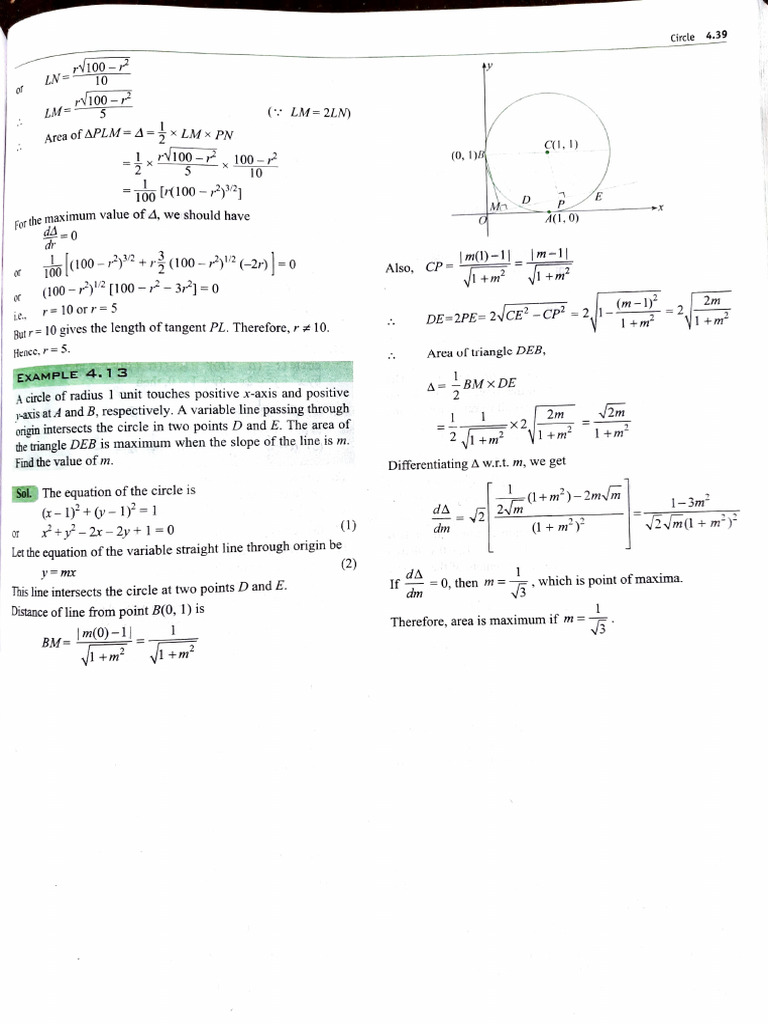 Circle 4.39
or LN = r√(100 – r²)/10
∴ LM = r√(100 – r²)/5 (∵ LM = 2LN)
∴ Area of ΔPLM = Δ = 1/2 × LM × PN
= 1/2 × r√(100 – r²)/5 × (100 – r²)/10
= 1/100 [r(100 – r²)^{3/2}]
For the maximum value of Δ, we should have
dΔ/dr = 0
or 1/100 [(100 – r²)^{3/2} + r 3/2 (100 – r²)^{1/2} (–2r)] = 0
or (100 – r²)^{1/2} [100 – r² – 3r²] = 0
i.e., r = 10 or r = 5
But r = 10 gives the length of tangent PL. Therefore, r ≠ 10.
Hence, r = 5.
EXAMPLE 4.13
A circle of radius 1 unit touches positive x-axis and positive
y-axis at A and B, respectively. A variable line passing through
origin intersects the circle in two points D and E. The area of
the triangle DEB is maximum when the slope of the line is m.
Find the value of m.
Sol. The equation of the circle is
(x – 1)² + (y – 1)² = 1
or x² + y² – 2x – 2y + 1 = 0 (1)
Let the equation of the variable straight line through origin be
y = mx (2)
This line intersects the circle at two points D and E.
Distance of line from point B(0, 1) is
BM = |m(0) – 1|/√(1 + m²) = 1/√(1 + m²)
y
C(1, 1)
(0, 1)B
M D P E
x
O A(1, 0)
Also, CP = |m(1) – 1|/√(1 + m²) = |m – 1|/√(1 + m²)
∴ DE = 2PE = 2√(CE² – CP²) = 2√(1 – (m – 1)²/(1 + m²)) = 2√(2m/(1 + m²))
∴ Area of triangle DEB,
Δ = 1/2 BM × DE
= 1/2 1/√(1 + m²) × 2√(2m/(1 + m²)) = √(2m)/(1 + m²)
Differentiating Δ w.r.t. m, we get
dΔ/dm = √2 [(1/(2√m) (1 + m²) – 2m√m)/(1 + m²)²] = (1 – 3m²)/(√2 √m(1 + m²)²)
If dΔ/dm = 0, then m = 1/√3, which is point of maxima.
Therefore, area is maximum if m = 1/√3.